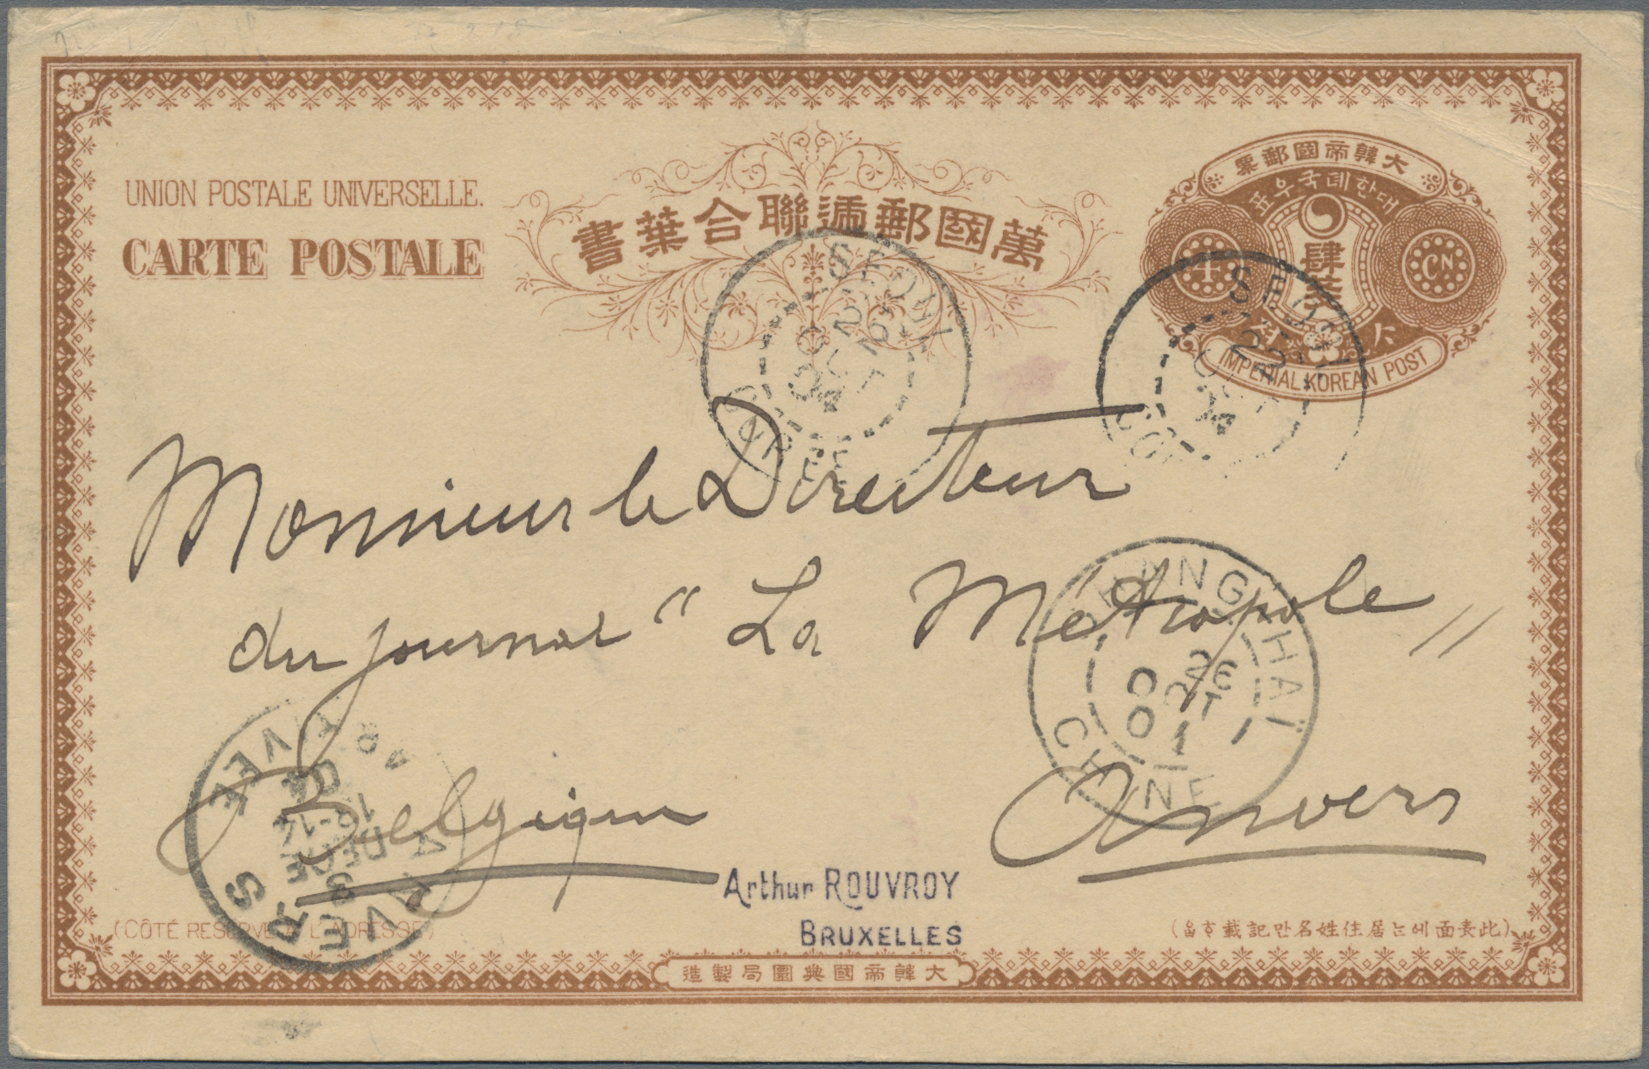 UNION POSTALE UNIVERSELLE.
CARTE POSTALE
書葉合聯遞郵國萬
票郵國帝韓大
표우국뎨한대
4
肆
CN
IMPERIAL KOREAN POST
SEOUL
26
OCT
04
COREE
SEOUL
04
Monsieur le Directeur
du journal " La Métropole "
Belgique Anvers
CHANG-HAÏ
26
OCT
CHINE
ANVERS
3
DECRE
13-14
04
Arthur ROUVROY
BRUXELLES
(CÔTÉ RESERVÉ À L'ADRESSE)
(홈ㅎ載記만名姓住居는에面表此)
造製局圜典國帝韓大